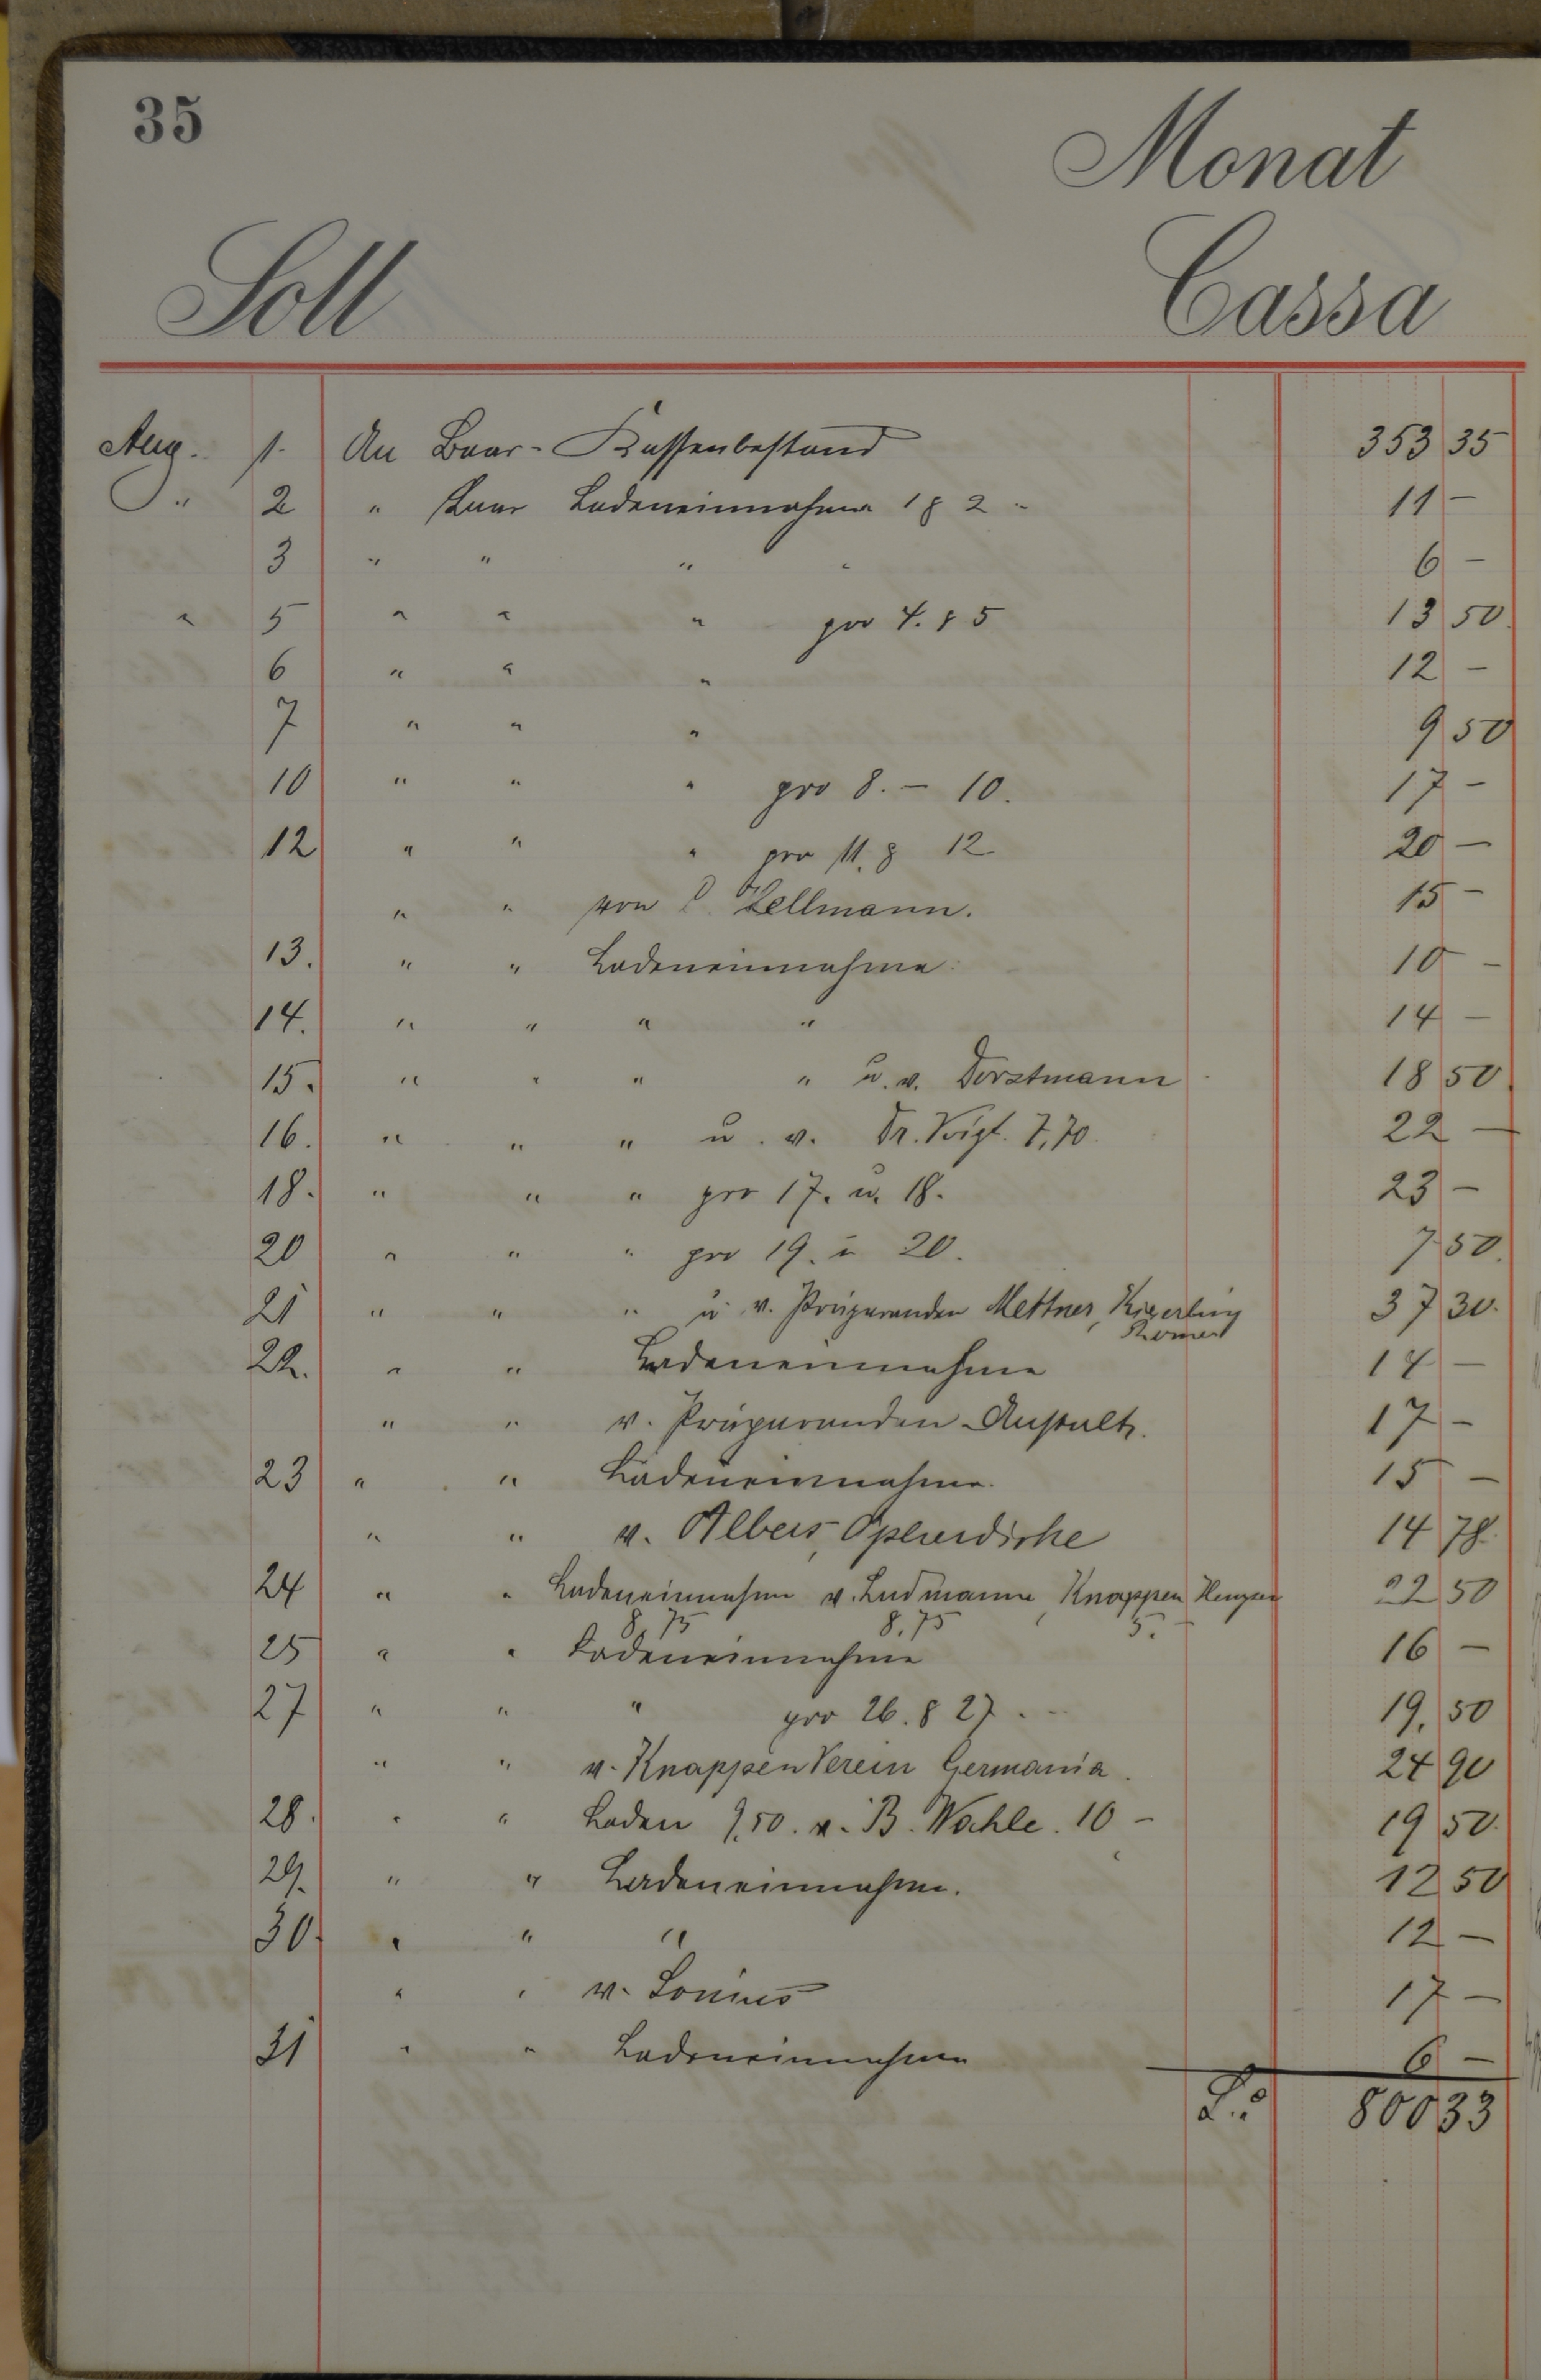 35
Monat
Soll Cassa
Aug. 1. An Baar-Kassenbestand 353 35
" 2 " Baar Ladeneinnahme 1 & 2 " 11 -
3 " " " " 6 -
" 5 " " " pro 4. & 5 13 50
6 " " " 12 -
7 " " " 9 50
10 " " " pro 8. - 10. 17 -
12 " " " pro 11. & 12 20 -
" " von Zellmann. 15 -
13. " " Ladeneinnahme 10 -
14. " " " " 14 -
15. " " " " u. v. Dorstmann 18 50
16. " " " u. v. Dr. Voigt. 7,70 22 -
18. " " " pro 17. u. 18. 23 -
20 " " " pro 19. u 20. 7 50.
21 " " " u. v. Präparanden Mettner,
37 30.
22. " " Ladeneinnahme 14 -
" " v. Präparanden-Anstalt. 17 -
23 " " Ladeneinnahme. 15 -
" " v. Albers, 14 78.
24 " " Ladeneinnahme v. Ludmann, Knappen 22 50
8,75 8,75 5.
25 " " Ladeneinnahme 16 -
27 " " " pro 26. & 27. - 19, 50
" " v. Knappen Verein Germania. 24 90
28. " " Laden 9,50. v. B. Wachle. 10 - 19 50.
29. " " Ladeneinnahme. 12 50
30. " " " 12 -
" " v. 17 -
31 " " Ladeneinnahme 6 -
800 33